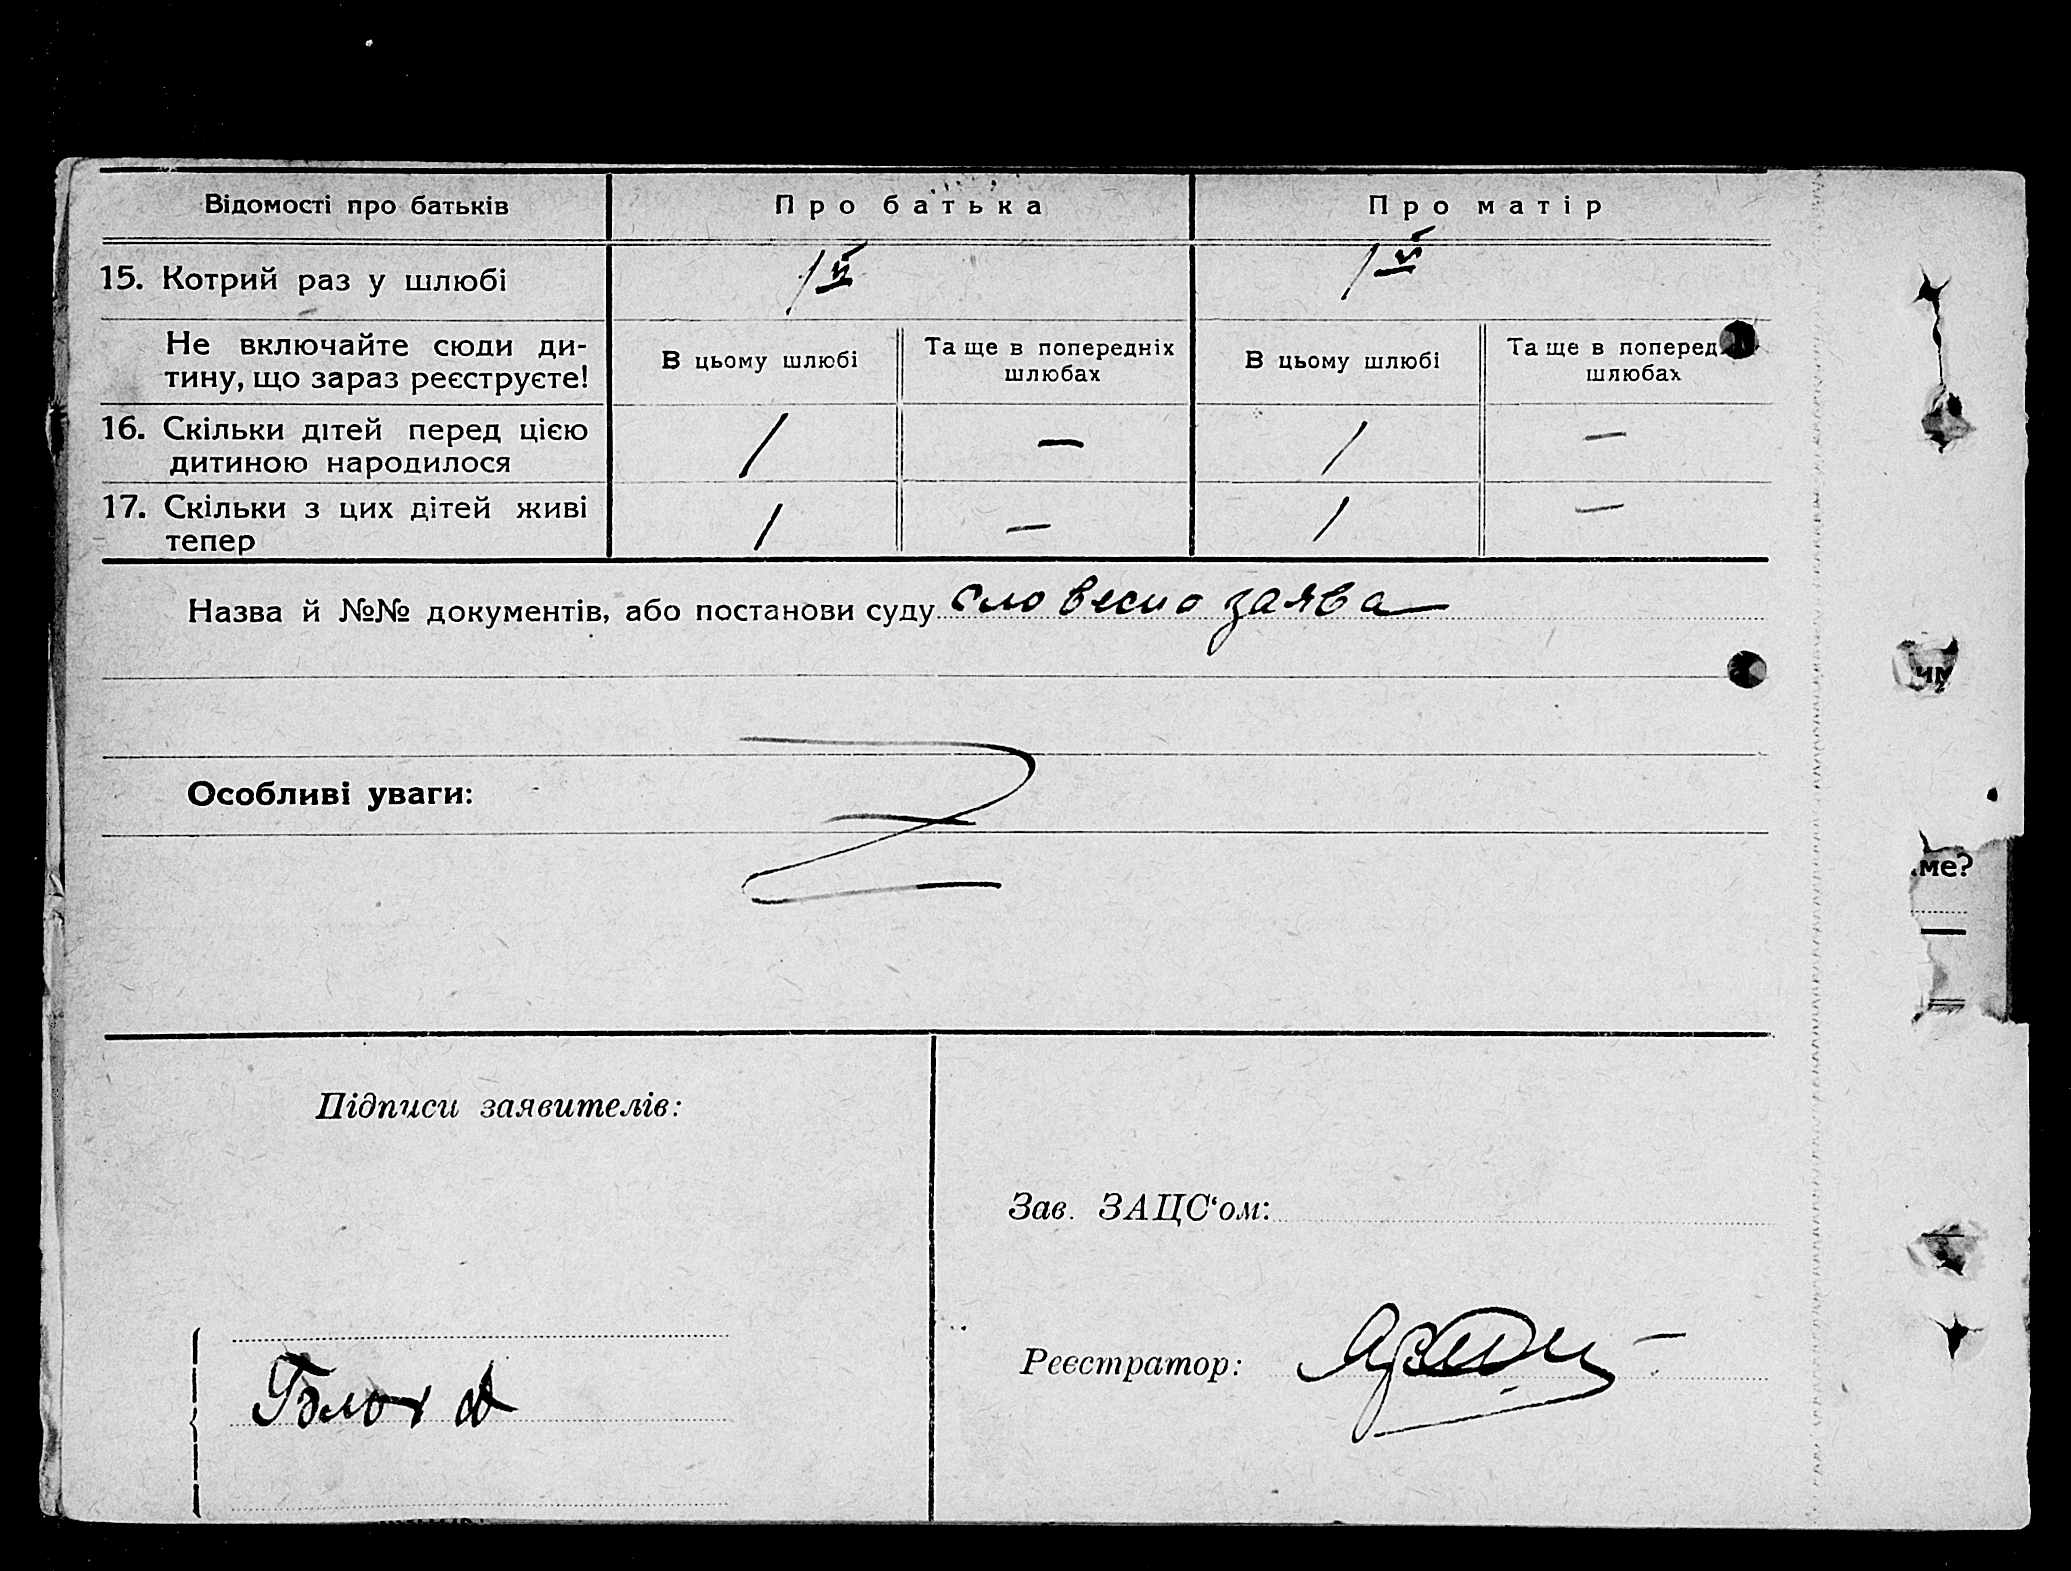 Відомості про батьків
Про батька
Про матір
15. Котрий раз у шлюбі
1й
1й
Не включайте сюди ди-
тину, що зараз реєструєте!
В цьому шлюбі
Та ще в попередніх
шлюбах
В цьому шлюбі
Та ще в поперед
шлюбах
16. Скільки дітей перед цією
дитиною народилося
1
—
1
—
17. Скільки з цих дітей живі
тепер
1
—
1
—
Назва й №№ документів, або постанови суду словесно заява
им
Особливі уваги:
ме?
Підписи заявителів:
Зав. ЗАЦС‘ом:
Реєстратор:
Блох